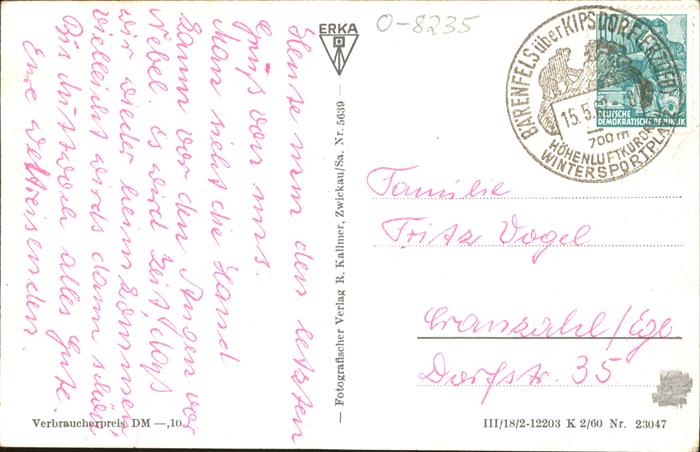 O-8235
ERKA
BÄRENFELS über KIPSDORF (ERZGEB)
15.5.
700 m
HÖHENLUFTKURORT
WINTERSPORTPLATZ
DEUTSCHE
DEMOKRATISCHE REPUBLIK
Heute nun den letzten
Gruß von uns.
Man sieht die Hand
kaum vor den Augen vor
Nebel. Es wird Zeit, daß
wir wieder heim kommen,
vielleicht wirds dann schön.
Bis dahin alles Gute.
Eure Weltreisenden.
– Fotografischer Verlag R. Kallmer, Zwickau/Sa. Nr. 5639 –
Familie
Fritz Vogel
Cranzahl/Egb.
Dorfstr. 35
Verbraucherpreis DM —,10
III/18/2-12203 K 2/60 Nr. 23047